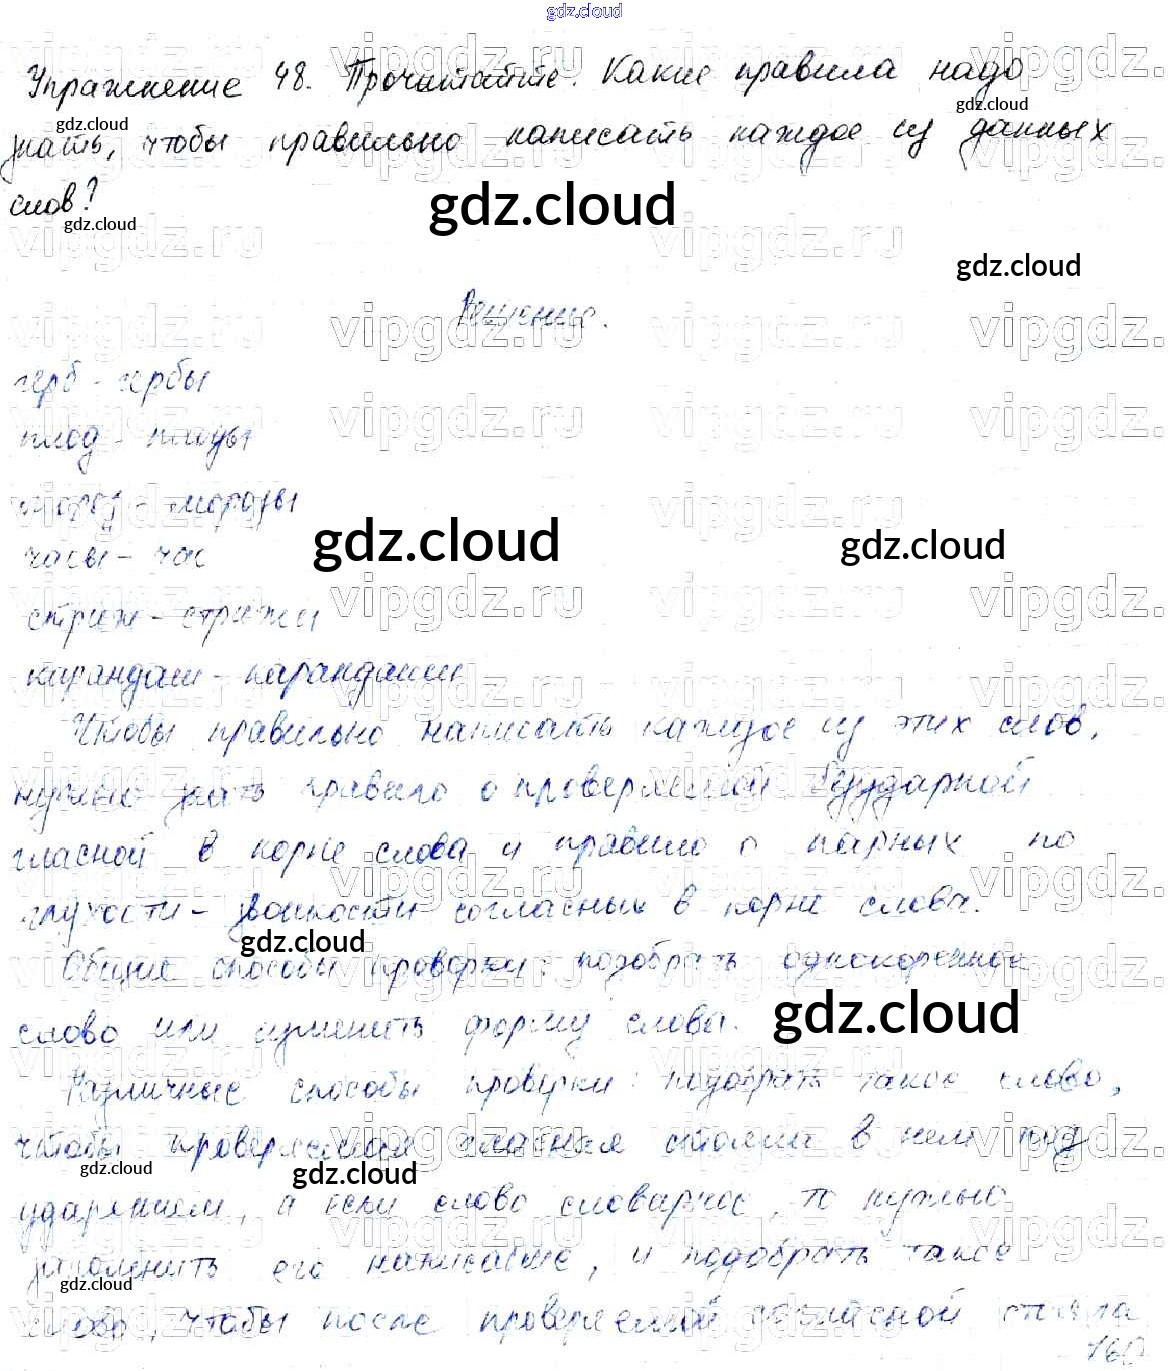 gdz.cloud
Упражнение 48. Прочитайте. Какие правила надо
gdz.cloud
знать, чтобы правильно написать каждое из данных
gdz.cloud
слов?
gdz.cloud
gdz.cloud
gdz.cloud
Решение.
герб - гербы
плод - плоды
мороз - морозы
часы - час
gdz.cloud
gdz.cloud
стриж - стрижи
карандаш - карандаши
Чтобы правильно написать каждое из этих слов,
нужно знать правило о проверяемой безударной
гласной в корне слова и правило о парных по
глухости - звонкости согласных в корне слова.
gdz.cloud
Общие способы проверки: подобрать однокоренное
слово или изменить форму слова.
gdz.cloud
Различные способы проверки: подобрать такое слово,
чтобы проверяемая гласная стояла в нем под
gdz.cloud
gdz.cloud
ударением, а если слово словарное, то нужно
запомнить его написание, и подобрать такое
gdz.cloud
слово, чтобы после проверяемой согласной стояла
vipgdz.ru